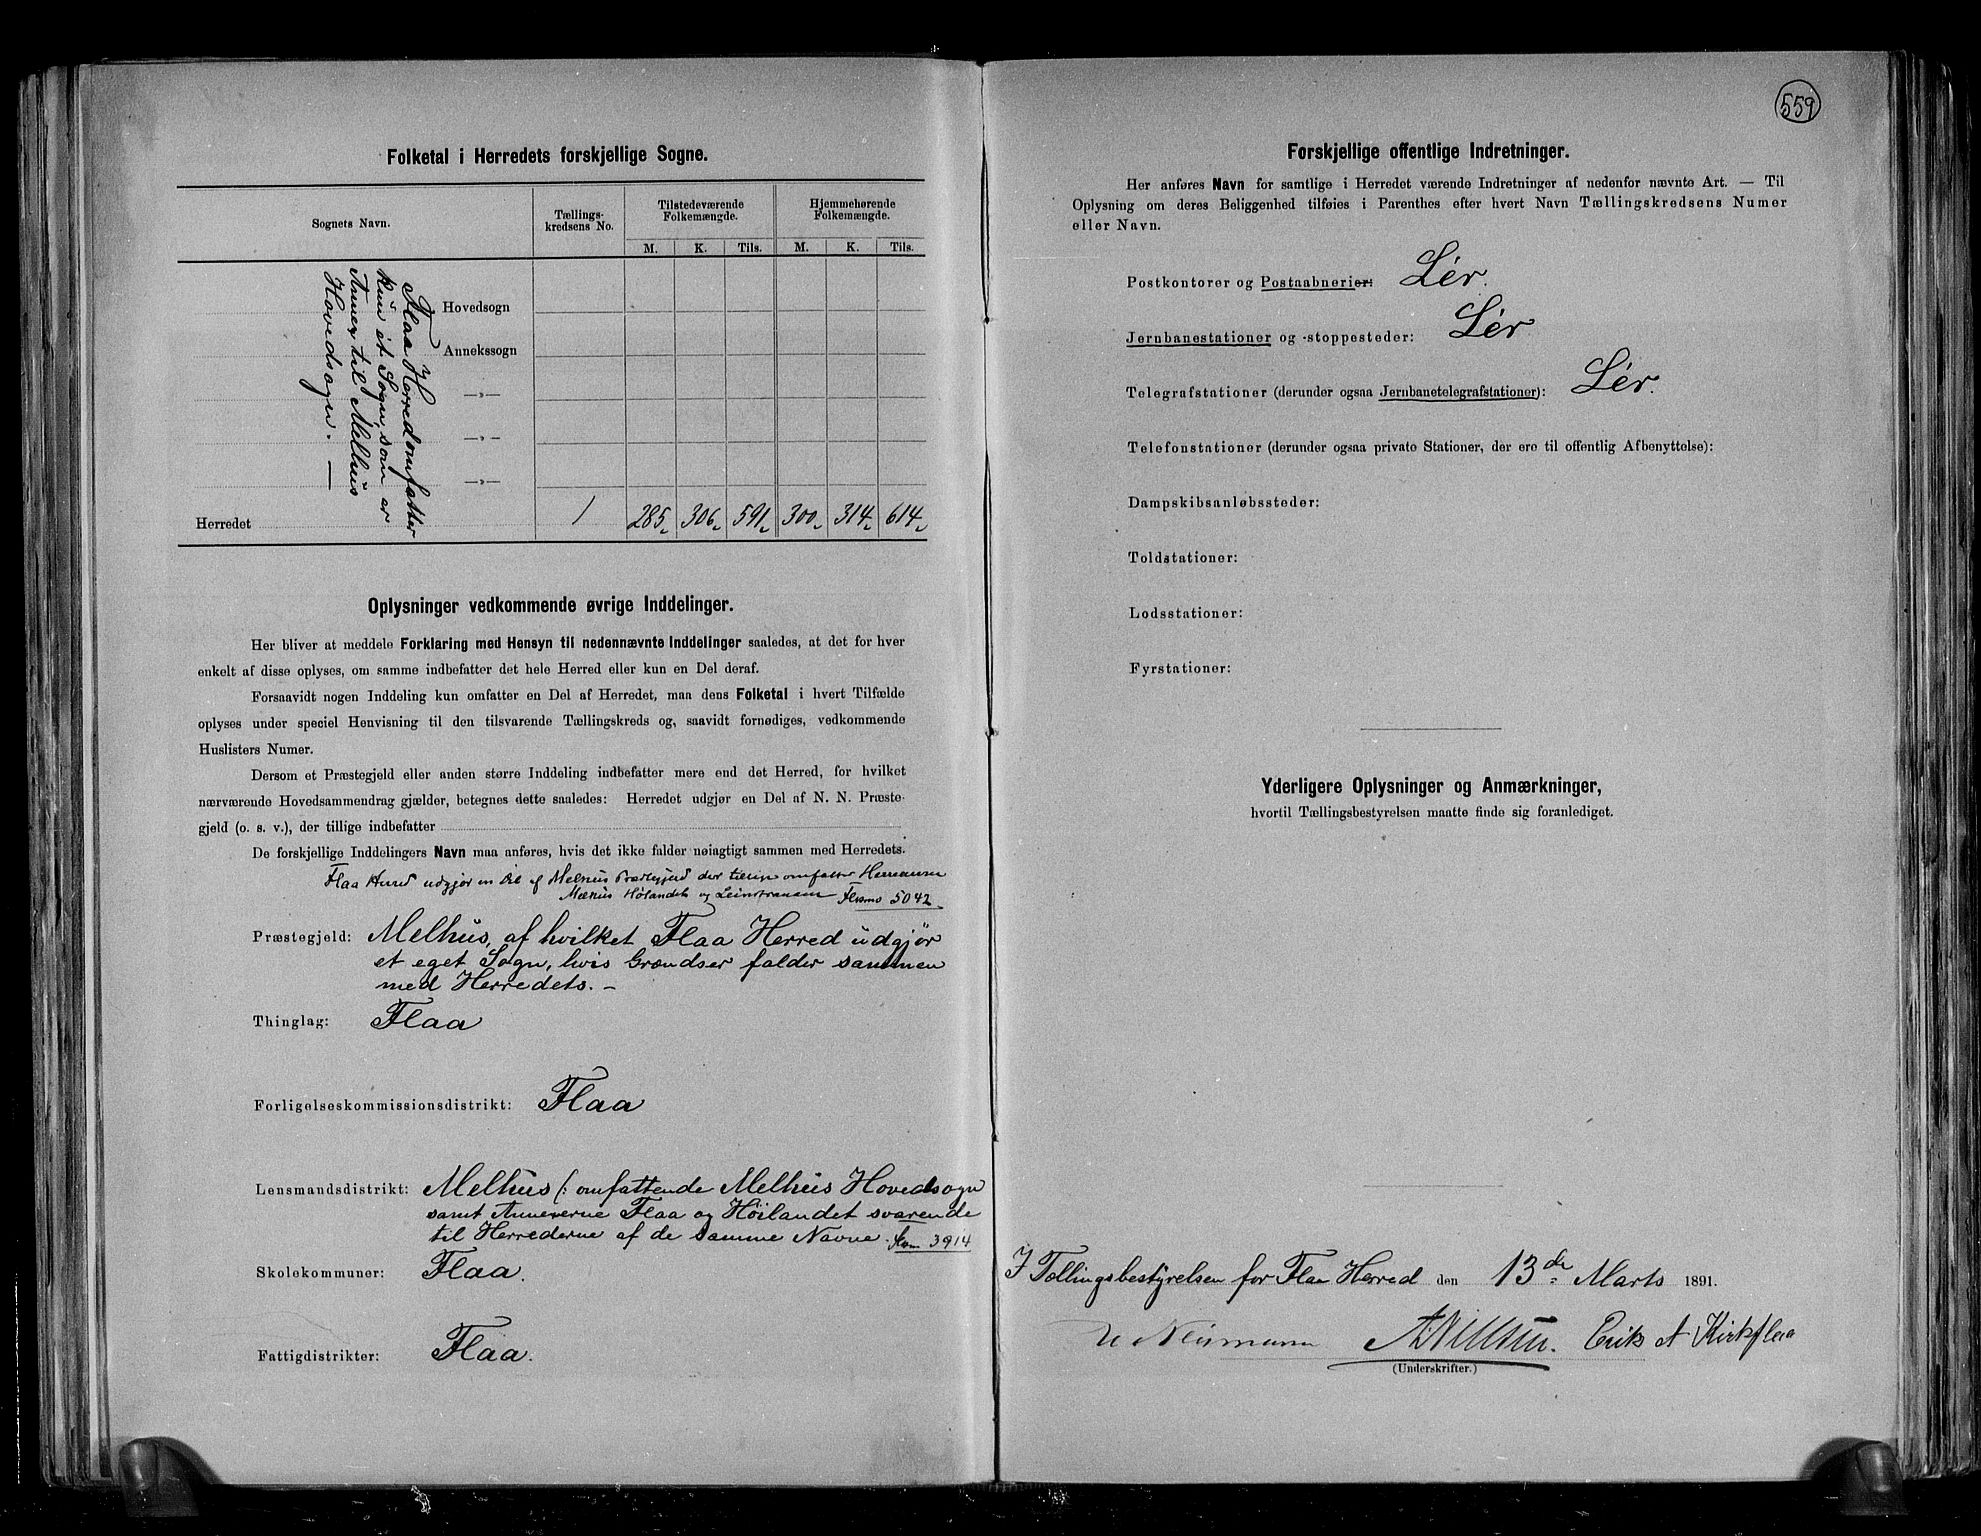 Folketal i Herredets forskjellige Sogne.
Sognets Navn.
Tællings-
kredsens No.
Tilstedeværende
Folkemængde.
Hjemmehørende
Folkemængde.
M. K. Tils. M. K. Tils.
Flaa Herred omfatter
kun ét Sogn, som er
Annex til Melhus
Hovedsogn. —
Hovedsogn
Annekssogn
—„—
—„—
—„—
Herredet 1 285 306 591 300 314 614
Oplysninger vedkommende øvrige Inddelinger.
Her bliver at meddele Forklaring med Hensyn til nedennævnte Inddelinger saaledes, at det for hver
enkelt af disse oplyses, om samme indbefatter det hele Herred eller kun en Del deraf.
Forsaavidt nogen Inddeling kun omfatter en Del af Herredet, maa dens Folketal i hvert Tilfælde
oplyses under speciel Henvisning til den tilsvarende Tællingskreds og, saavidt fornødiges, vedkommende
Huslisters Numer.
Dersom et Præstegjeld eller anden større Inddeling indbefatter mere end det Herred, for hvilket
nærværende Hovedsammendrag gjælder, betegnes dette saaledes: Herredet udgjør en Del af N. N. Præste-
gjeld (o. s. v.), der tillige indbefatter
De forskjellige Inddelingers Navn maa anføres, hvis det ikke falder nøiagtigt sammen med Herredets.
Flaa Herred udgjør en Del af Melhus Præstegjeld der tillige omfatter Herrederne
Melhus Hølandet og Leinstranden 5042
Præstegjeld: Melhus, af hvilket Flaa Herred udgjør
et eget Sogn, hvis Grændser falder sammen
med Herredets. —
Thinglag: Flaa
Forligelseskommissionsdistrikt: Flaa
Lensmandsdistrikt: Melhus (: omfattende Melhus Hovedsogn
samt Annexerne Flaa og Höilandet svarende
til Herrederne af de samme Navne. 3914
Skolekommuner: Flaa.
Fattigdistrikter: Flaa.
559
Forskjellige offentlige Indretninger.
Her anføres Navn for samtlige i Herredet værende Indretninger af nedenfor nævnte Art. — Til
Oplysning om deres Beliggenhed tilføies i Parenthes efter hvert Navn Tællingskredsens Numer
eller Navn.
Postkontorer og Postaabnerier: Lér.
Jernbanestationer og -stoppesteder: Lér
Telegrafstationer (derunder ogsaa Jernbanetelegrafstationer): Lér.
Telefonstationer (derunder ogsaa private Stationer, der ere til offentlig Afbenyttelse):
Dampskibsanløbssteder:
Toldstationer:
Lodsstationer:
Fyrstationer:
Yderligere Oplysninger og Anmærkninger,
hvortil Tællingsbestyrelsen maatte finde sig foranlediget.
I Tællingsbestyrelsen for Flaa Herred den 13de Marts 1891.
Neumann A. Nilsen. Erik A Kirkflaa
(Underskrifter.)